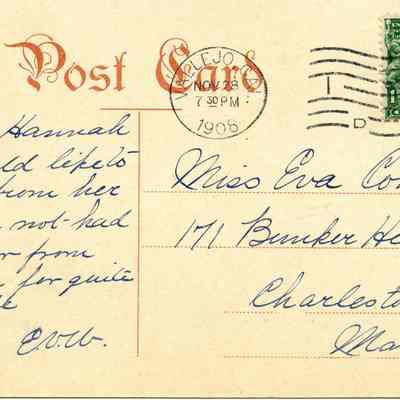 Post Card
VALLEJO, CA.
NOV 28
7 30 PM
1908
1
D
Hannah
ld like to
from her
not had
from
for quite
E.V.W.
Miss Eva Co
171 Bunker H
Charlesto
Ma